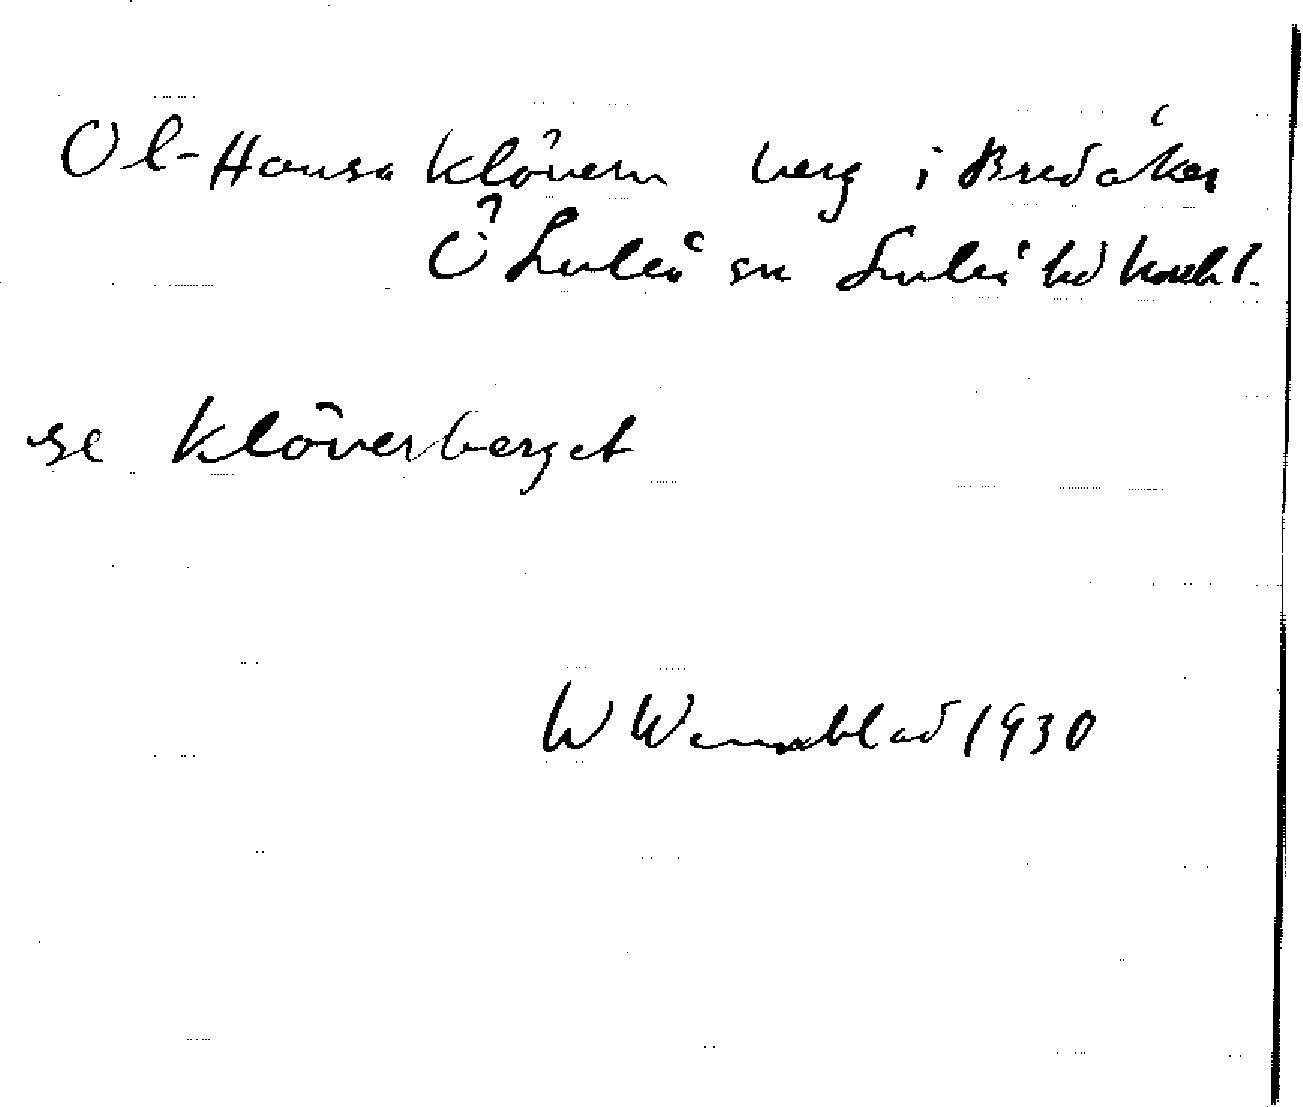 Ol-Hansa Klövern berg i Bredåker
Ö Luleå sn Luleå
se Klöverberget
W Wennblad 1930